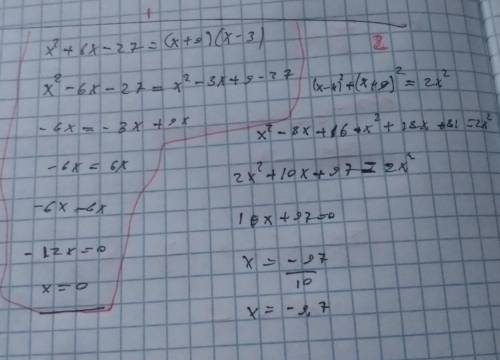 1
x² + 6x - 27 = (x + 9)(x - 3)
x² - 6x - 27 = x² - 3x + 9 - 27
- 6x = - 3x + 9x
- 6x = 6x
- 6x - 6x
- 12x = 0
x = 0
2
(x - 4)² + (x + 9)² = 2x²
x² - 8x + 16 + x² + 18x + 81 = 2x²
2x² + 10x + 97 = 2x²
10x + 97 = 0
x = - 97
10
x = - 9,7